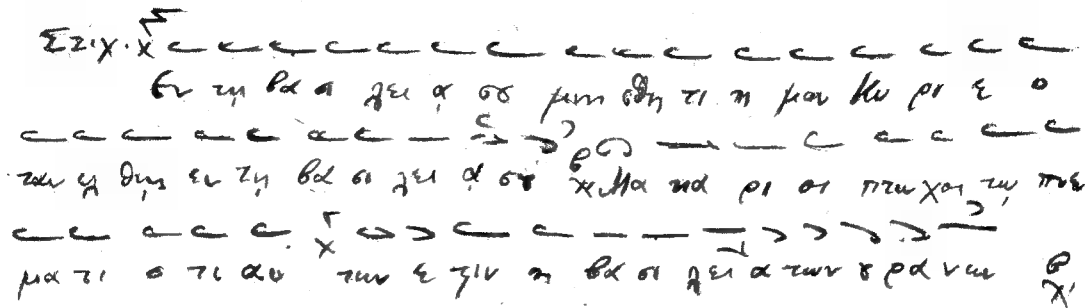 Στιχ. χ
Εν τη βα σι λει α σου μνη σθη τι η μων Κυ ρι ε ο
ταν ελ θης εν τη βα σι λει α σου Μα κα ρι οι πτωχοι τω πνε
μα τι ο τι αυ των ε στιν η βα σι λει α των ου ρα νων